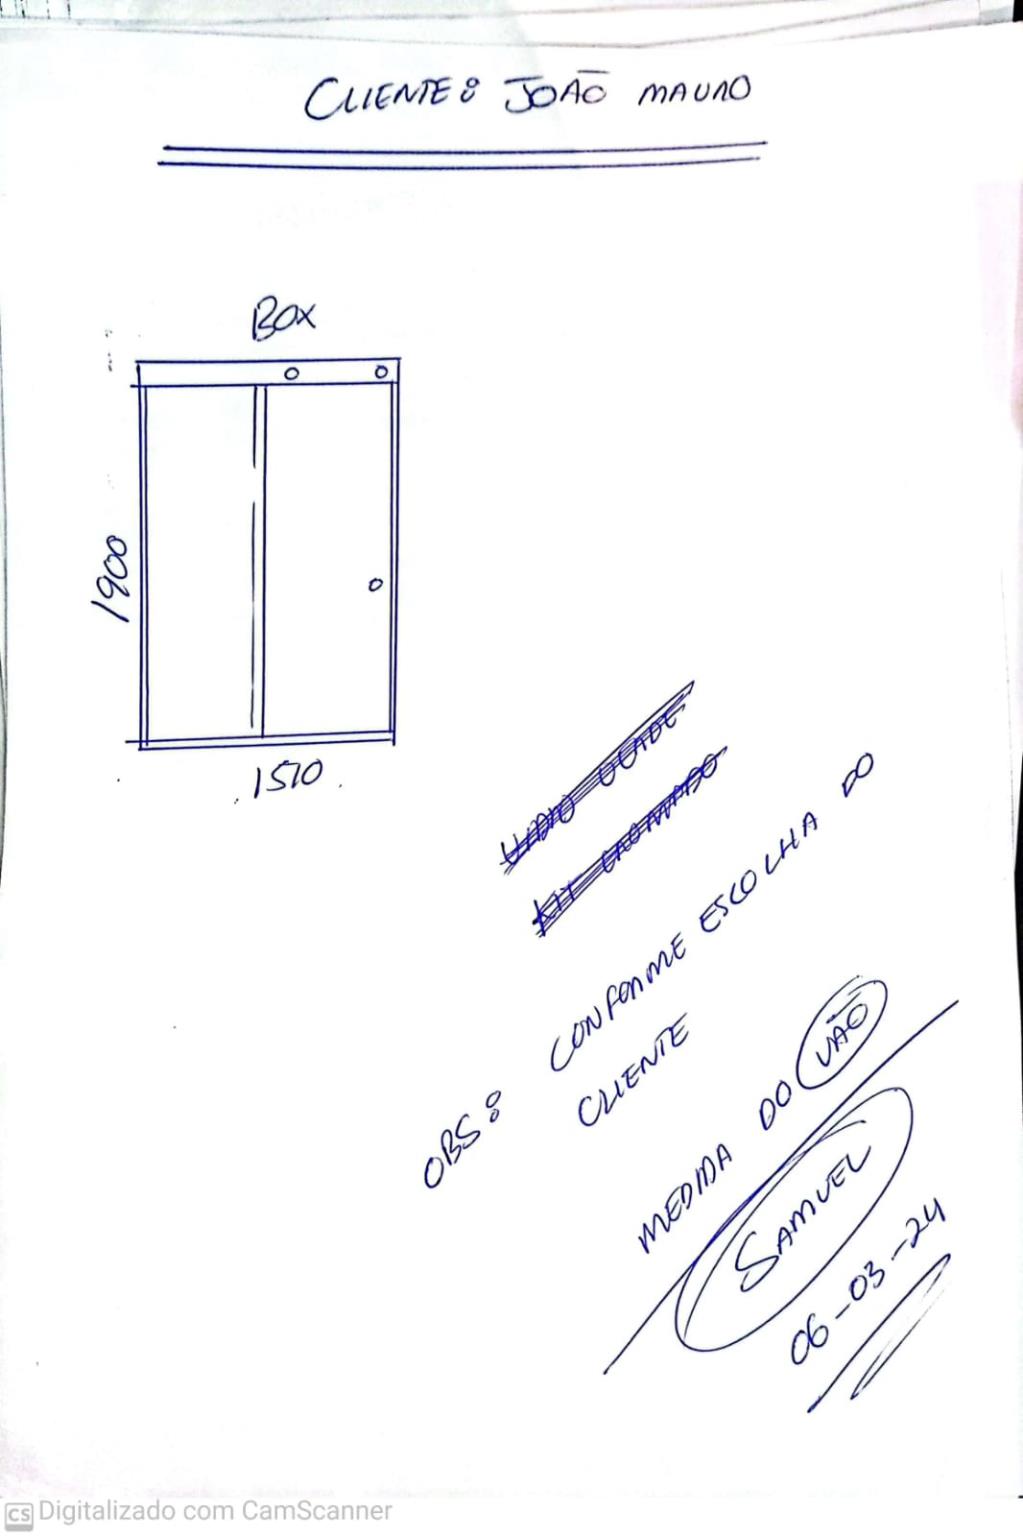 CLIENTE: JOÃO MAURO
BOX
1900
1510
VIDRO VERDE
KIT CROMADO
OBS: CONFORME ESCOLHA DO
CLIENTE
MEDIDA DO VÃO
SAMUEL
06-03-24
CS Digitalizado com CamScanner